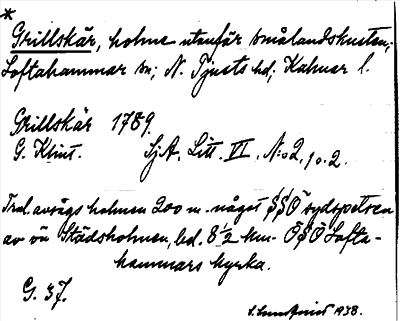 *
Grillskär, holme utanför Smålandskusten;
Loftahammar sn; N. Tjusts hd; Kalmar l.
Grillskär 1789.
G. Klint. SjA. Litt. VI. N:o 2, 10.2.
Trol. avsågs holmen 200 m. något SSO sydspetsen
av ön Städsholmen, bel. 8½ km. OSO Lofta-
hammars kyrka.
G. 37.
1938.